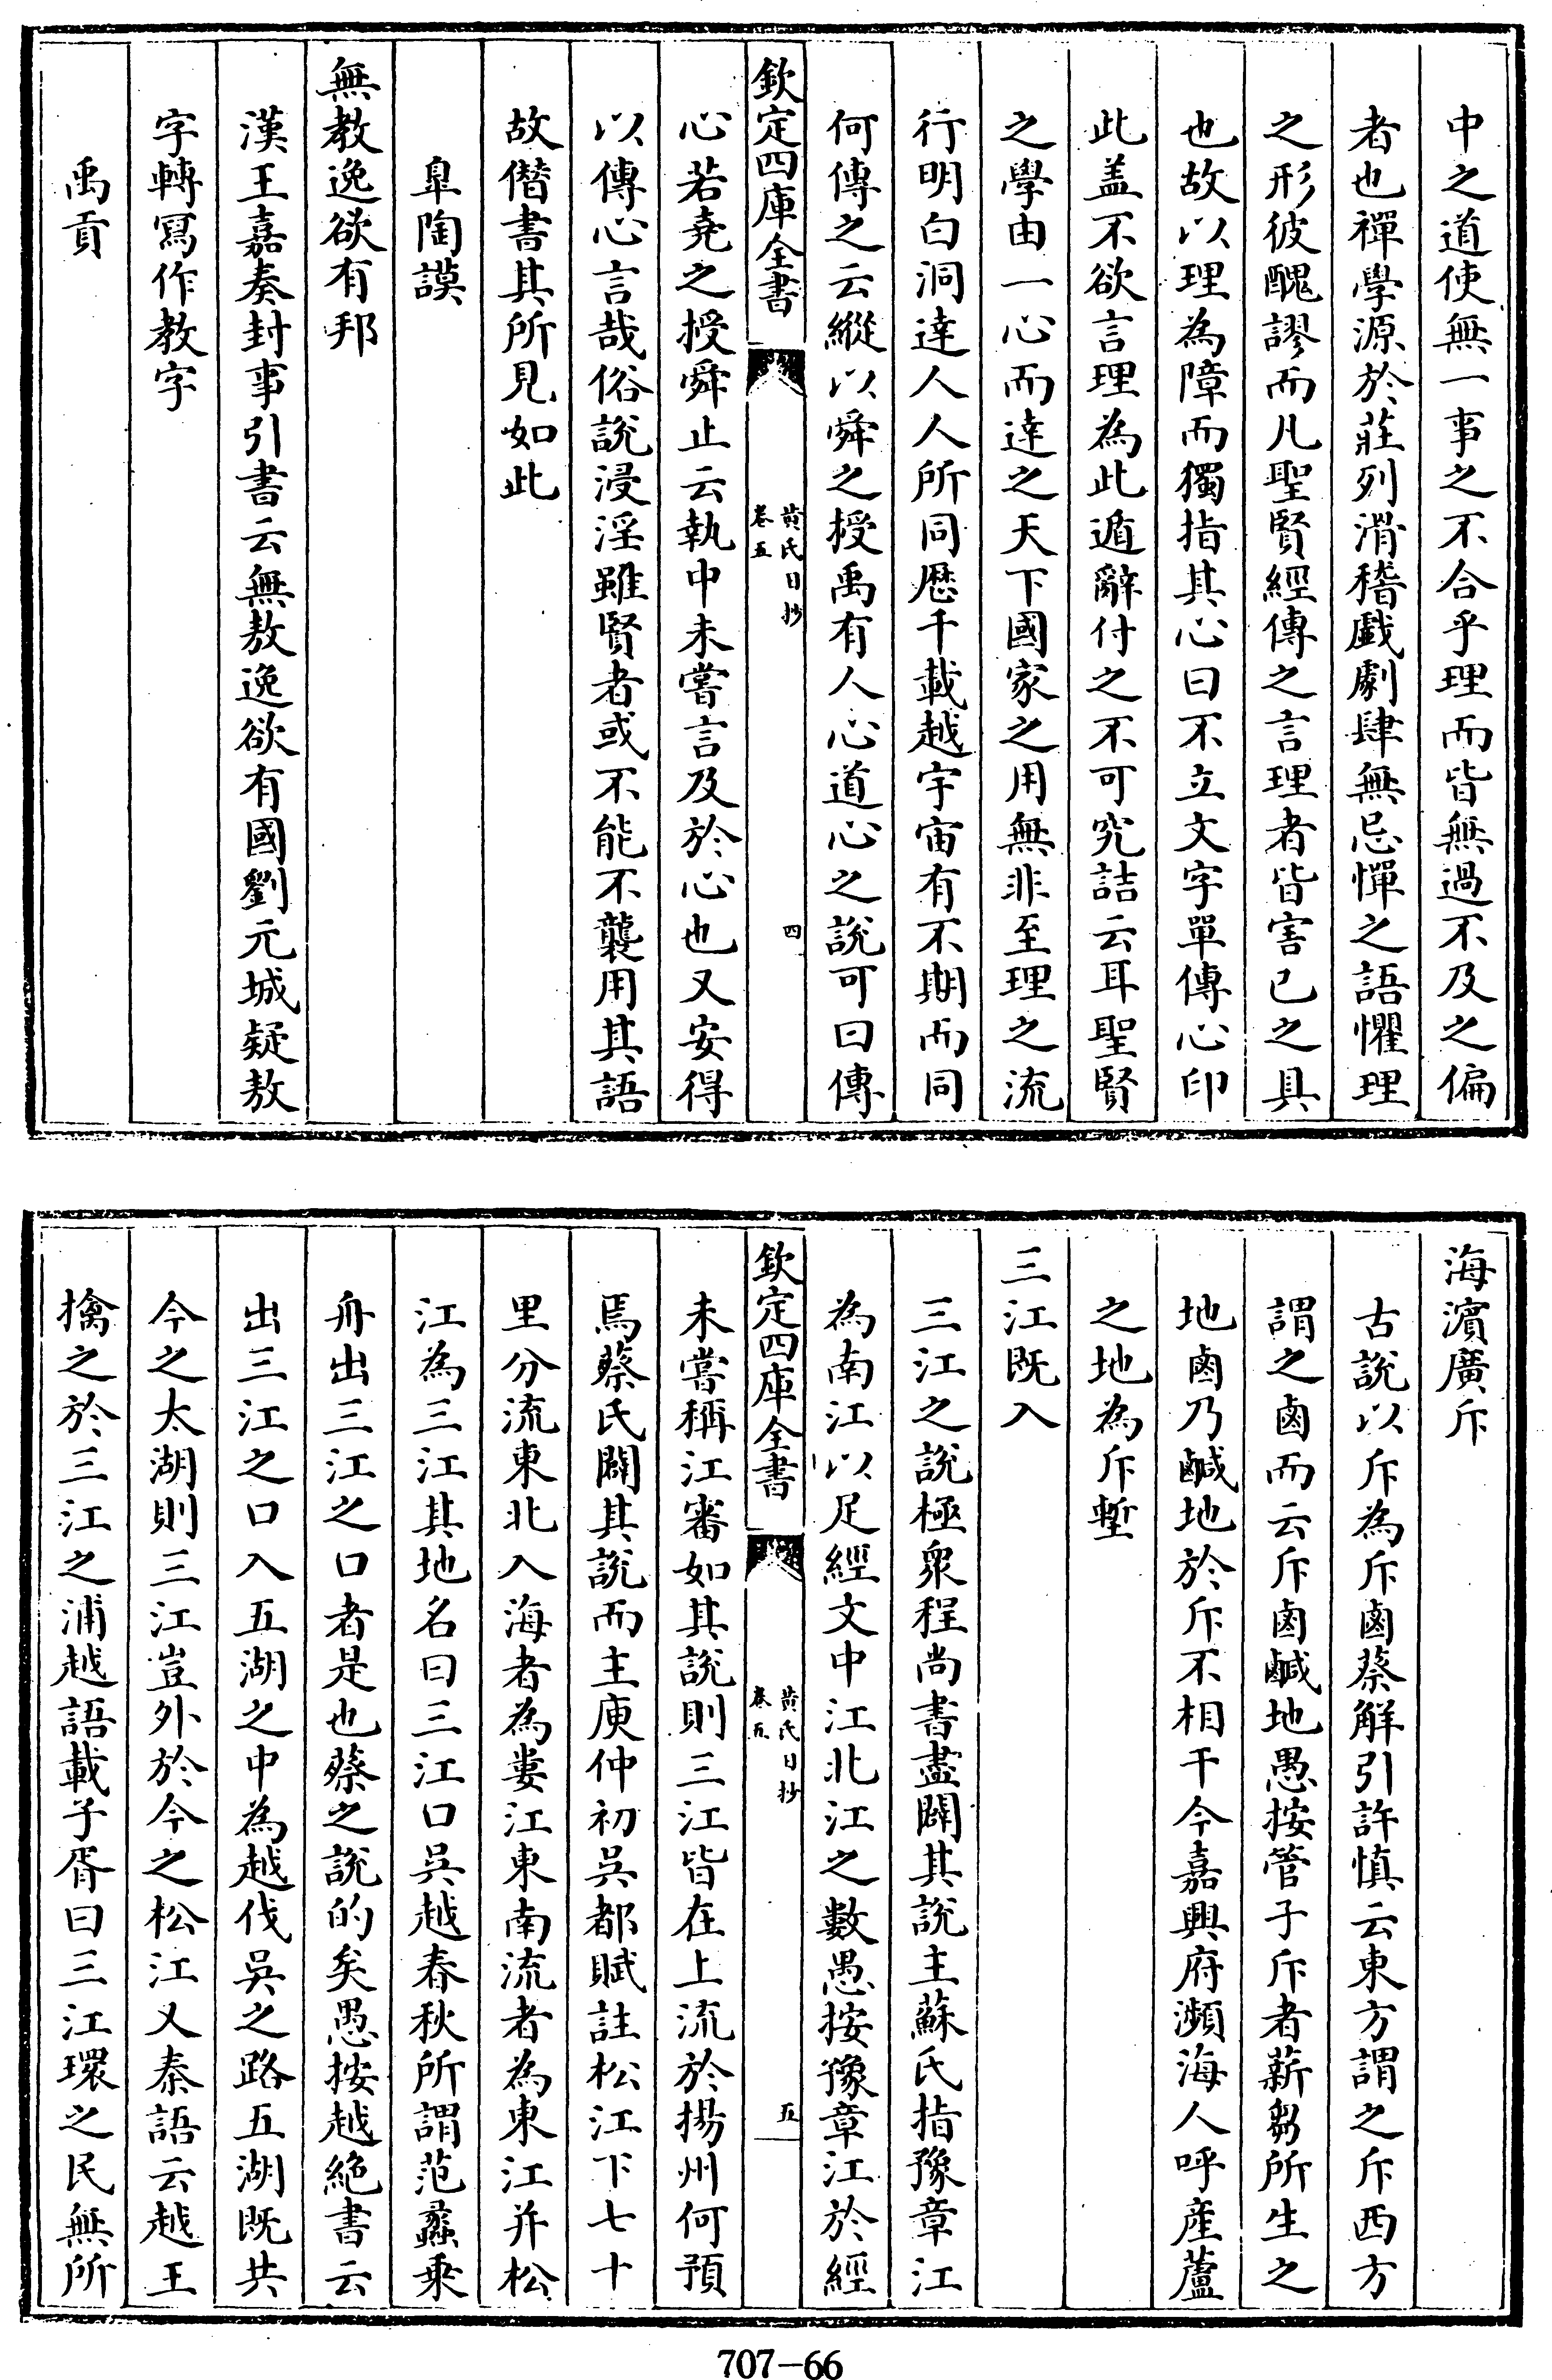 中之道使無一事之不合乎理而皆無過不及之偏
者也禪學源於莊列滑稽戲劇肆無忌憚之語懼理
之形彼醜謬而凡聖賢經傳之言理者皆害已之具
也故以理為障而獨指其心曰不立文字單傳心印
此盖不欲言理為此遁辭付之不可究詰云耳聖賢
之學由一心而達之天下國家之用無非至理之流
行明白洞達人人所同歴千載越宇宙有不期而同
何傳之云縱以舜之授禹有人心道心之說可曰傳
欽定四庫全書
黃氏日抄
卷五
四
心若堯之授舜止云執中未嘗言及於心也又安得
以傳心言哉俗說浸淫雖賢者或不能不襲用其語
故僭書其所見如此
臯陶謨
無教逸欲有邦
漢王嘉奏封事引書云無敖逸欲有國劉元城疑敖
字轉寫作教字
禹貢
海濱廣斥
古說以斥為斥鹵蔡解引許慎云東方謂之斥西方
謂之鹵而云斥鹵鹹地愚按管子斥者薪芻所生之
地鹵乃鹹地於斥不相干今嘉興府瀕海人呼産蘆
之地為斥塹
三江既入
三江之說極衆程尚書盡闢其說主蘇氏指豫章江
為南江以足經文中江北江之數愚按豫章江於經
欽定四庫全書
黃氏日抄
卷五
五
未嘗稱江審如其說則三江皆在上流於揚州何預
焉蔡氏闢其說而主庾仲初吳都賦註松江下七十
里分流東北入海者為婁江東南流者為東江并松
江為三江其地名曰三江口吳越春秋所謂范蠡乘
舟出三江之口者是也蔡之說的矣愚按越絶書云
出三江之口入五湖之中為越伐吳之路五湖既共
今之太湖則三江豈外於今之松江又秦語云越王
擒之於三江之浦越語載子胥曰三江環之民無所
707-66